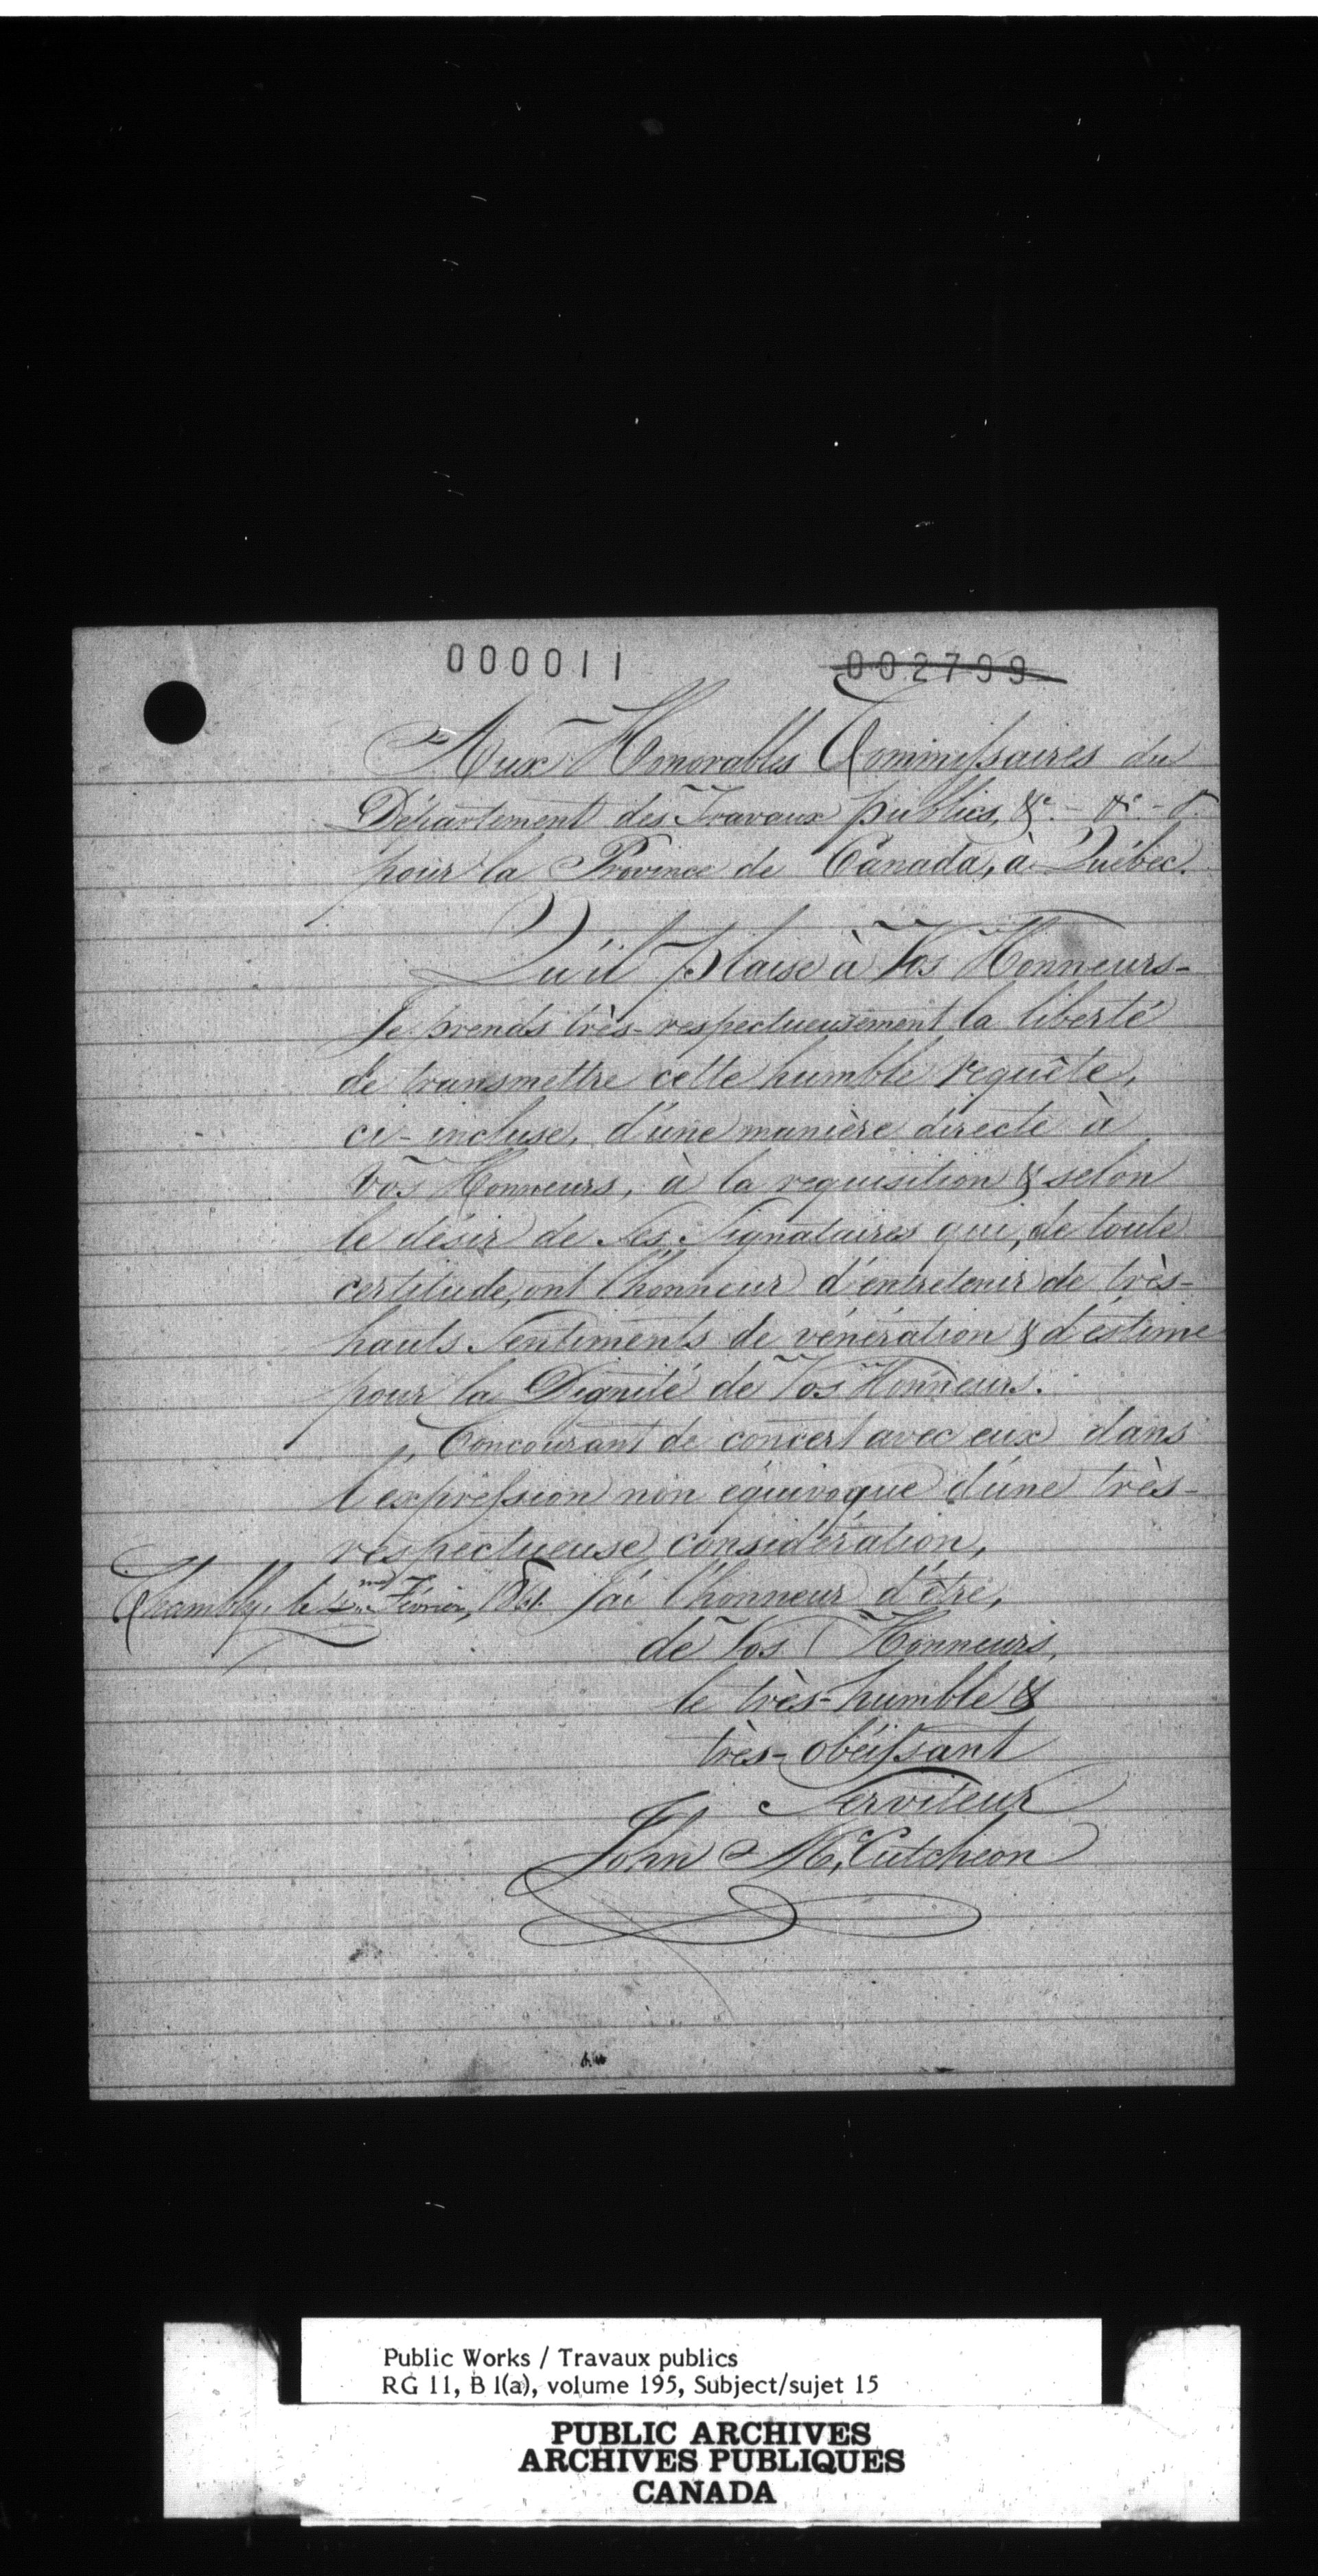 000011 002799
Aux Honorables Commissaires du
Département des Travaux publics, &c. - &c. - &.
pour la Province de Canada, à Québec.
Qu'il Plaise à Vos Honneurs -
Je prends très-respectueusement la liberté
de transmettre cette humble requête,
ci-incluse, d'une manière directe à
Vos Honneurs, à la requisition & selon
le désir de Ses Signataires qui, de toute
certitude, ont l'honneur d'entretenir de très-
hauts Sentiments de vénération & d'estime
pour la Dignité de Vos Honneurs.
Concourant de concert avec eux dans
l'expression non équivoque d'une très-
respectueuse considération,
Chambly, le Février, 1861. J'ai l'honneur d'être,
de Vos Honneurs,
le très-humble &
très-obéissant
Serviteur
John McCutcheon
Public Works / Travaux publics
RG 11, B 1(a), volume 195, Subject/sujet 15
PUBLIC ARCHIVES
ARCHIVES PUBLIQUES
CANADA